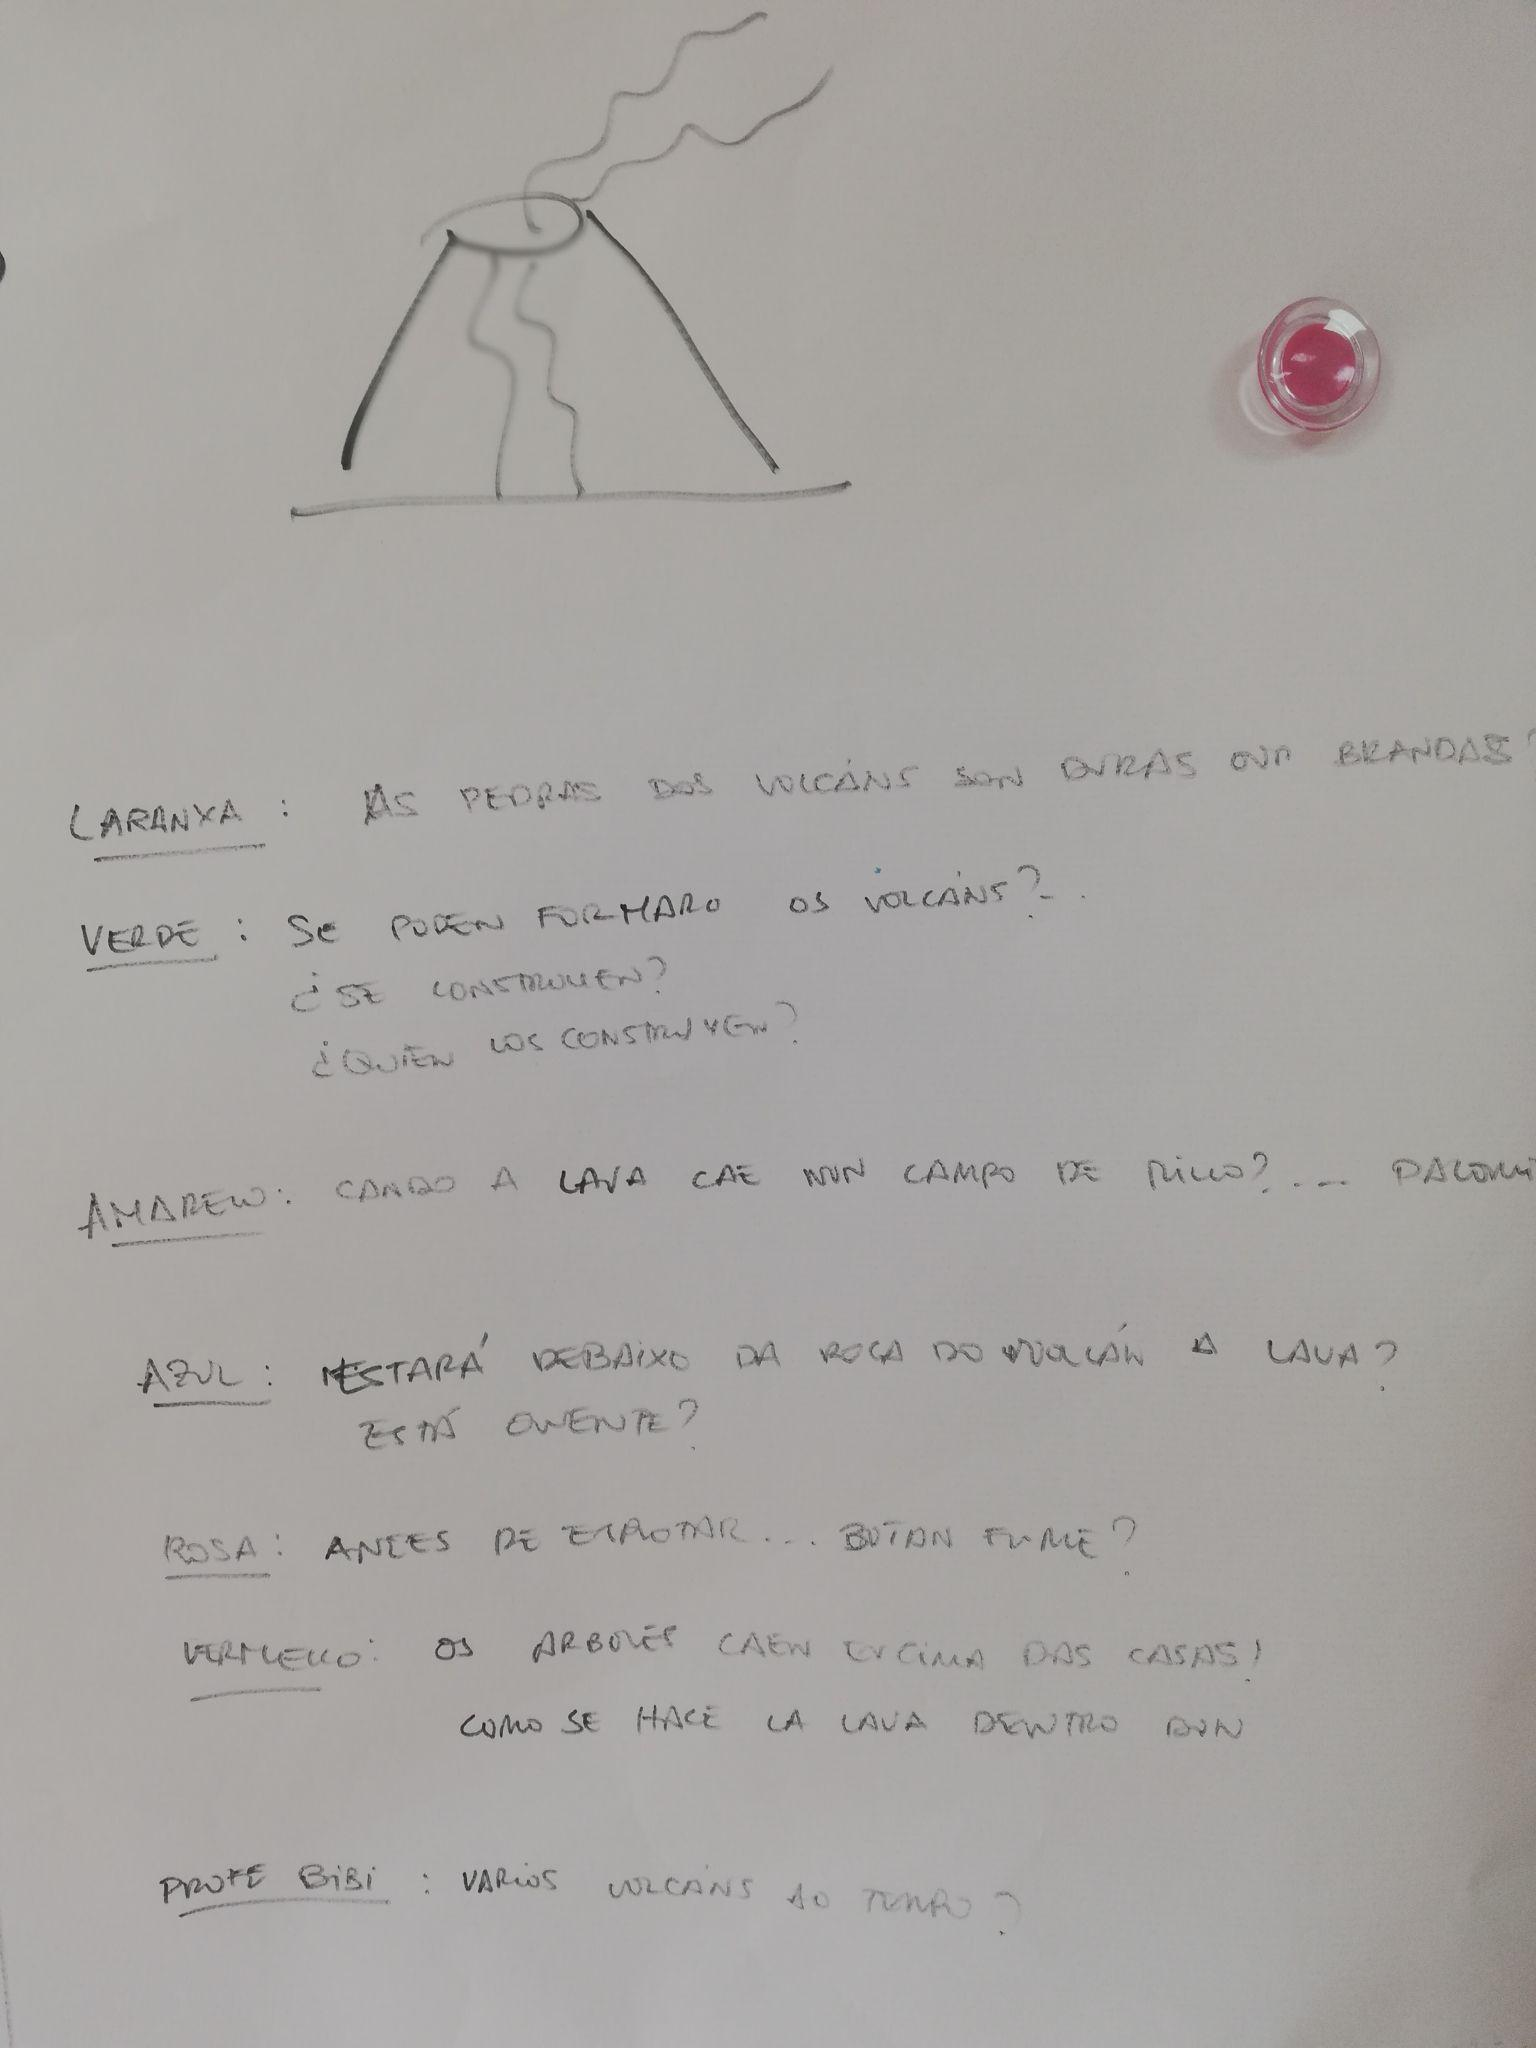 LARANXA : AS PEDRAS DOS VOLCÁNS SON DURAS OUN BRANDAS?
VERDE : SE PODEN FORMARO OS VOLCÁNS?..
¿SE CONSTRUUEN?
¿QUIÉN LOS CONSTRUYEN?
AMARELO: CANDO A LAVA CAE NUN CAMPO DE MILLO?...
AZUL : ESTARÁ DEBAIXO DA ROCA DO VOLCÁN A LAVA?
ESTÁ QUENTE?
ROSA : ANTES DE EXPLOTAR... BOTAN FUME?
VERMELLO: OS ARBOLES CAEN ENCIMA DAS CASAS!
COMO SE HACE LA LAVA DENTRO DUN
PROFE BIBI : VARIOS VOLCÁNS AO TEMPO?